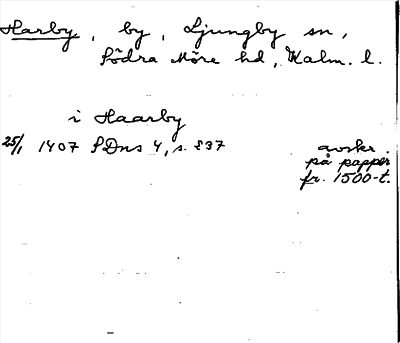 Harby, by, Ljungby sn,
Södra Möre hd, Kalm. l.
i Haarby
25/1 1407 SDns 4, s. 837
avskr.
på papper
fr. 1500-t.